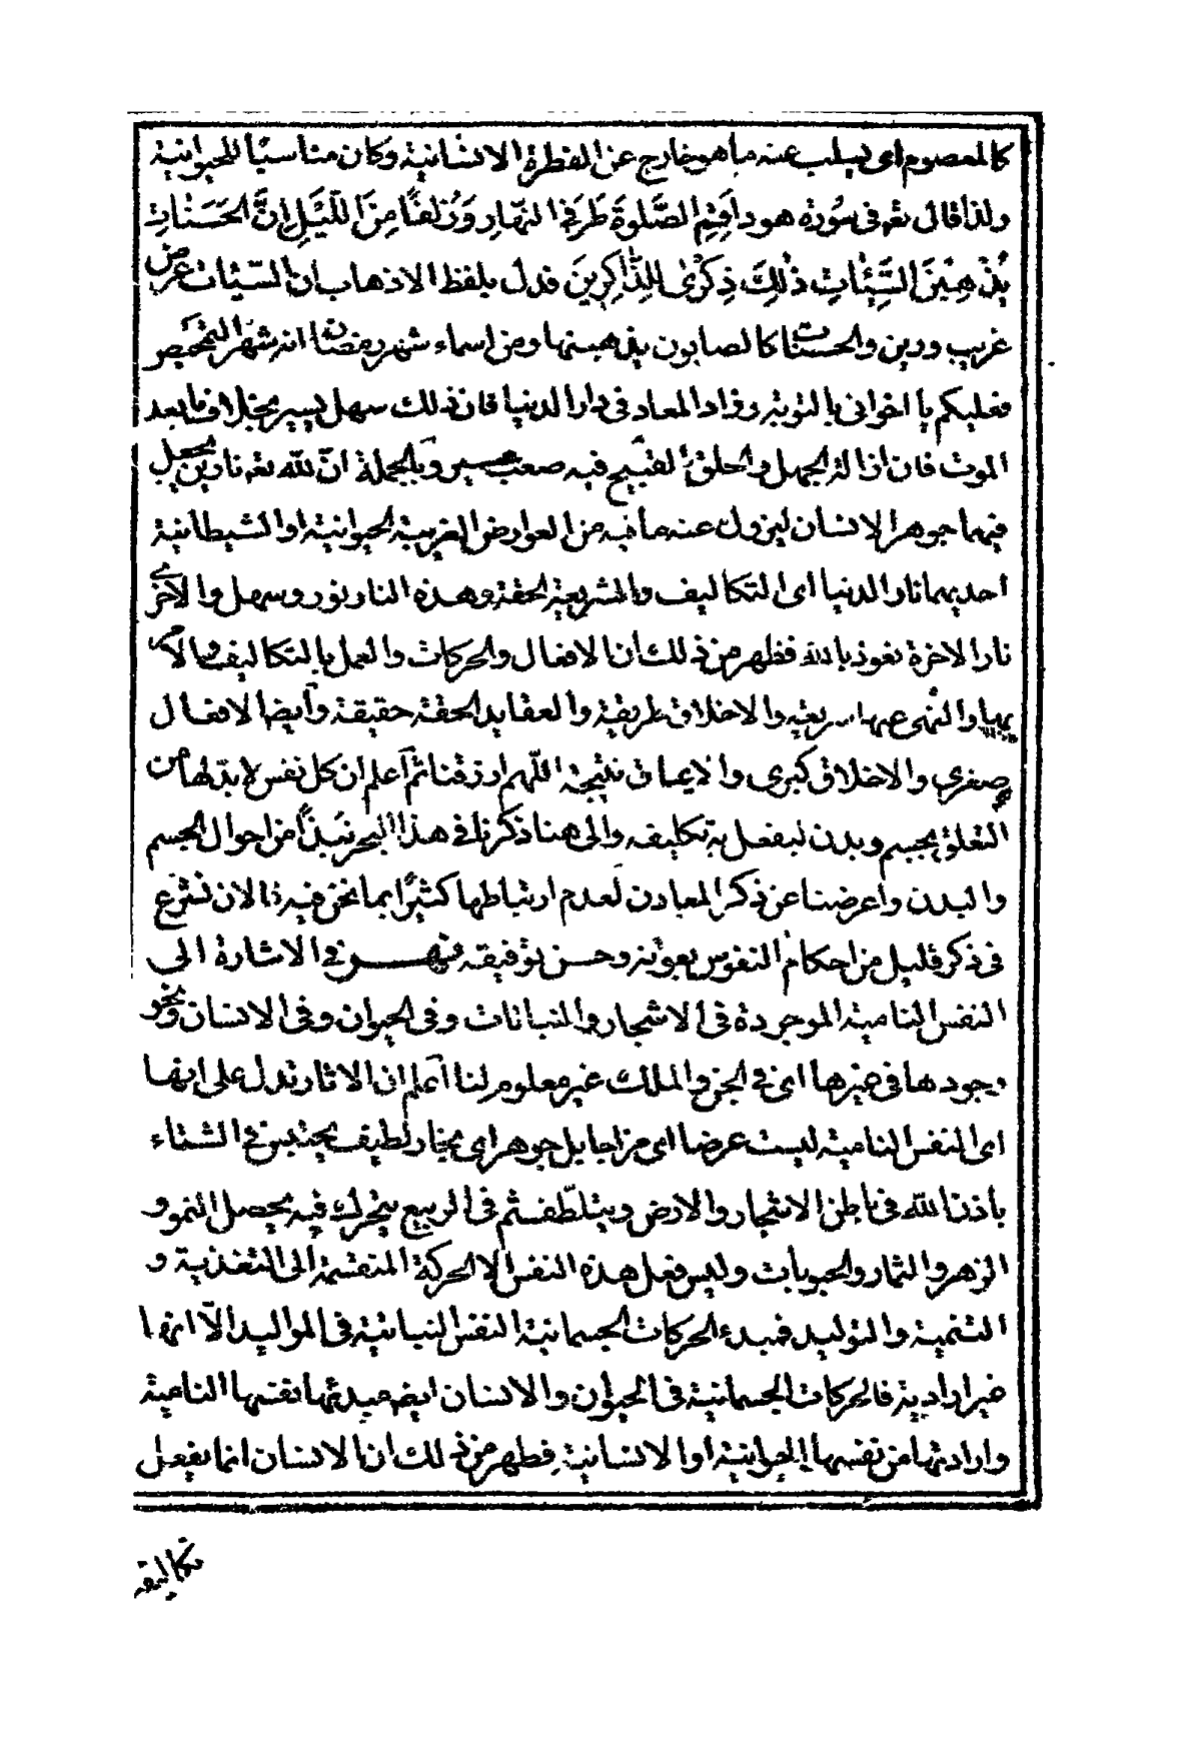 كالمعصوم اى يسلب عنه ما هو خارج عن الفطرة الانسانية وكان مناسبا للحيوانية
ولذا قال تعه فى سورة هود اَقِمِ الصَّلٰوةَ طَرَفَىِ النَّهَارِ وَزُلَفًا مِنَ اللَّيْلِ اِنَّ الحَسَنَاتِ
يُذْهِبْنَ السَّيِّئَاتِ ذٰلِكَ ذِكْرٰى لِلذَّاكِرِينَ فدل بلفظ الاذهاب ان السيئات عرض
غريب ورين والحسنات كالصابون يذهبنها ومن اسماء شهر رمضان انه شهر التمحيص
فعليكم يا اخوانى بالتوبة وزاد المعاد فى دار الدنيا فان ذلك سهل يسير بخلاف ما بعد
الموت فان ازالة الجهل والخلق القبيح فيه صعب عسير وبالجملة انّ لله تعه نارين يجعل
فيهما جوهر الانسان ليزول عنه ما فيه من العوارض الغريبة الحيوانية او الشيطانية
احديهما نار الدنيا اى التكاليف والشريعة الحقة وهذه النار نور وسهل والاخرى
نار الاخرة نعوذ بالله فظهر من ذلك ان الافعال والحركات والعمل بالتكاليف والامر
بها والنهى عنها شريعة والاخلاق طريقة والعقايد الحقة حقيقة وايضا الافعال
صغرى والاخلاق كبرى والايمان نتيجة اللّهم ارزقنا ثم اعلم ان كل نفس لابد لها من
التعلق بجسم وبدن ليفعل به تكليفه والى هنا ذكرنا فى هذا البحر نبذًا من احوال الجسم
والبدن واعرضنا عن ذكر المعادن لعدم ارتباطها كثيرًا بما نحن فيه فالان نشرع
فى ذكر قليل من احكام النفوس بعونه وحسن توفيقه نهر فى الاشارة الى
النفس النامية الموجودة فى الاشجار والنباتات وفى الحيوان وفى الانسان ونحو
وجودها فى غيرها اى فى الجن والملك غير معلوم لنا اعلم ان الاثار تدل على انها
اى النفس النامية ليست عرضا اى مزاجا بل جوهر اى بخار لطيف يحتبس فى الشتاء
باذن الله فى باطن الاشجار والارض ويتلطّف ثم فى الربيع يتحرك فيه يحصل النمو و
الزهر والثمار والحبوبات وليس فعل هذه النفس الا الحركة المنقسمة الى التغذية و
التنمية والتوليد فمبدء الحركات الجسمانية النفس النباتية فى المواليد الّا انها
غير ارادية فالحركات الجسمانية فى الحيوان والانسان ايضه مبدئها نفسها النامية
وارادتها من نفسها الحيوانية او الانسانية فظهر من ذلك ان الانسان انما يفعل
تكاليفه